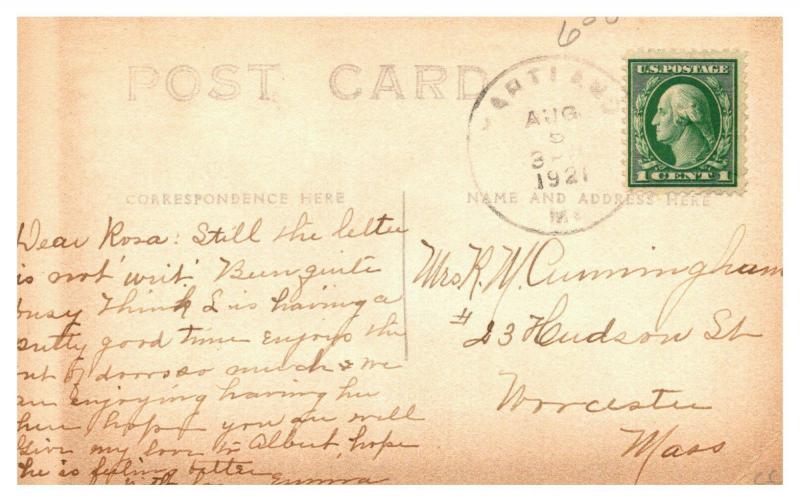 600
POST CARD
HARTLAND
AUG
5
3
1921
ME
U.S. POSTAGE
1 CENT 1
CORRESPONDENCE HERE
NAME AND ADDRESS HERE
Dear Rosa: Still the letter
is not 'writ'. Been quite
busy Think I is having a
pretty good time enjoys the
out of doors so much & we
are enjoying having her
here hope you are well
Give my love to Albert, hope
he is feeling better
Emma
Mrs R. M. Cunningham
# 23 Hudson St
Worcester
Mass
CC